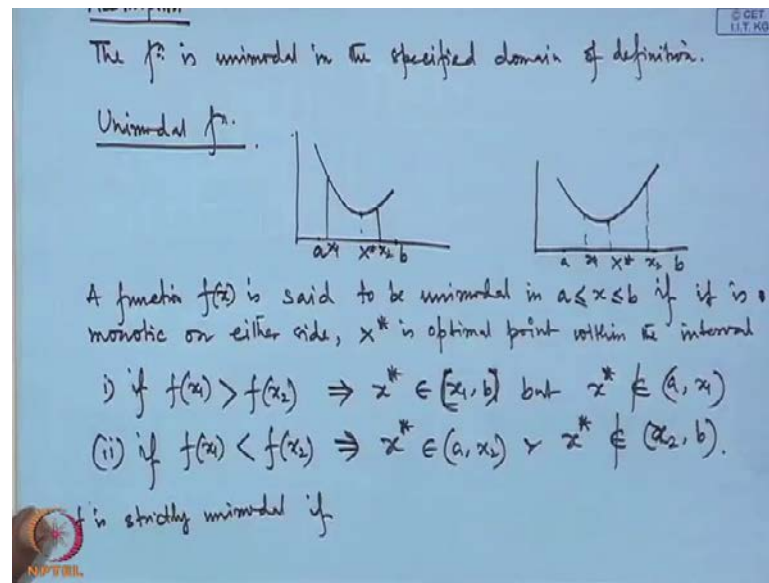 © CET
I.I.T. KG
The fn. is unimodal in the specified domain of definition.
Unimodal fn.
a x1 x* x2 b
a x1 x* x2 b
A function f(x) is said to be unimodal in a ≤ x ≤ b if if is
monotic on either side, x* is optimal point within the interval
i) if f(x1) > f(x2) ⇒ x* ∈ [x1, b] but x* ∉ (a, x1)
(ii) if f(x1) < f(x2) ⇒ x* ∈ (a, x2) & x* ∉ (x2, b).
is strictly unimodal if
NPTEL